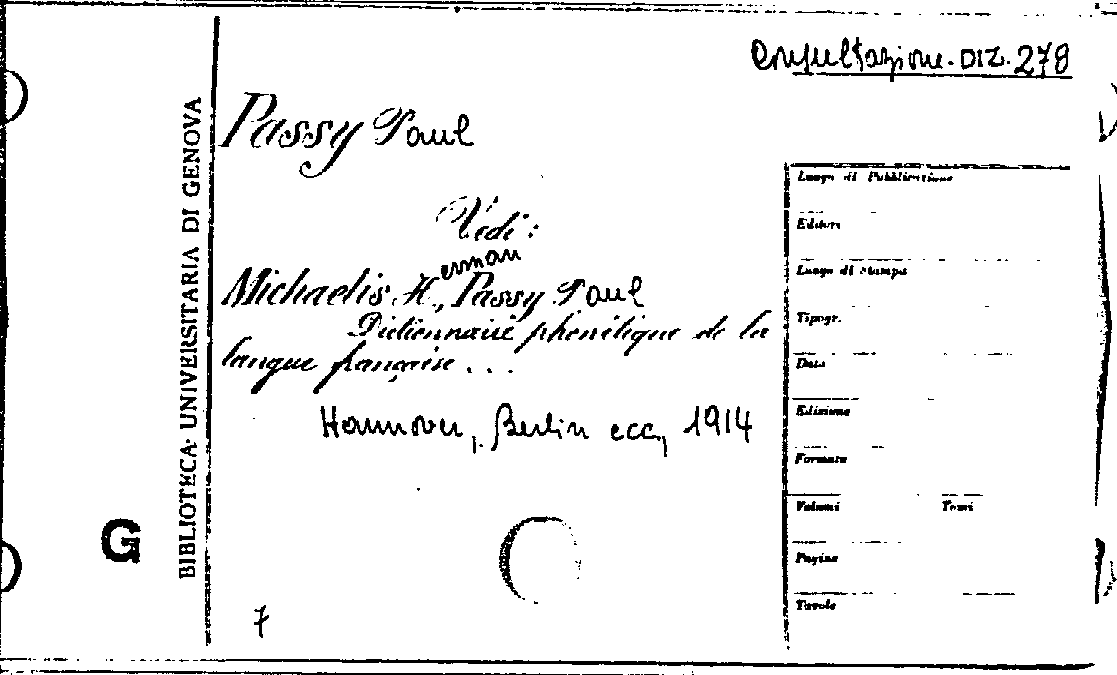 Consultazione. DIZ. 278
Passy Paul
Vedi:
Michaelis Herman, Passy Paul
Dictionnaire phonétique de la
langue française ...
Hannover, Berlin ecc, 1914
BIBLIOTECA UNIVERSITARIA DI GENOVA
G
7
Luogo di Pubblicazione
Editore
Luogo di stampa
Tipogr.
Data
Edizione
Formato
Volumi Tomi
Pagine
Tavole